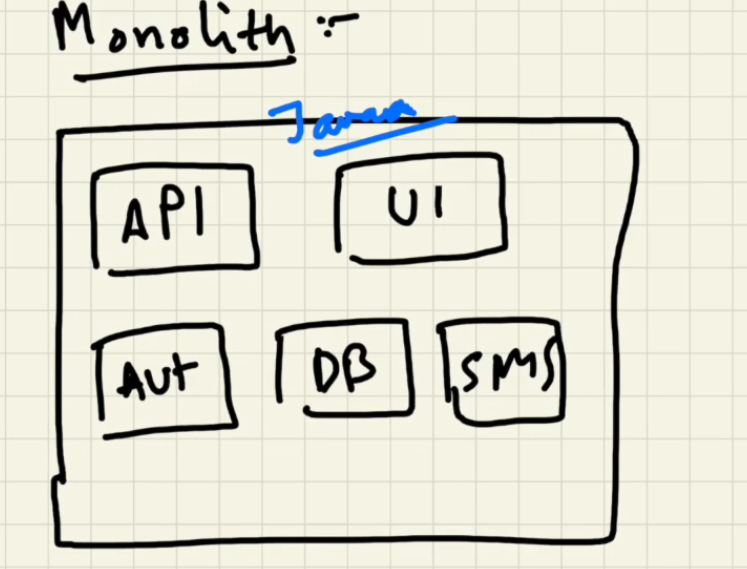 Monolith :-
API
UI
Aut
DB
SMS